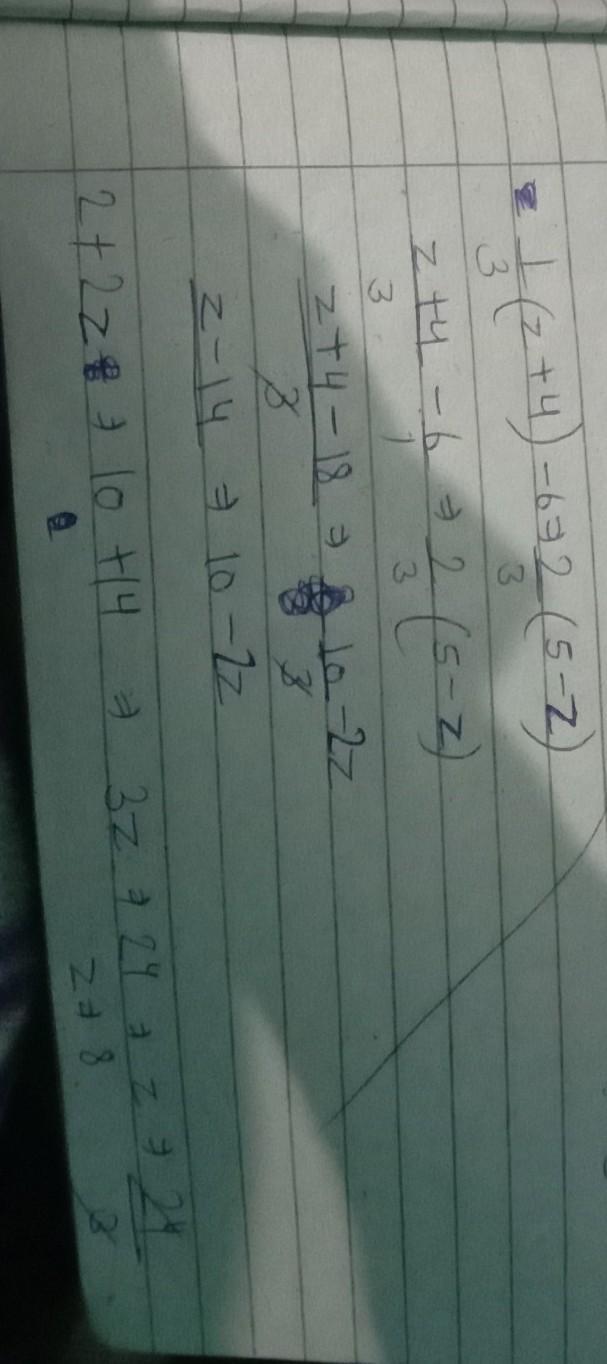 1/3 (z + 4) - 6 ⇒ 2/3 (5 - z)
z + 4/3 - 6/1 ⇒ 2/3 (5 - z)
z + 4 - 18/3 ⇒ 10 - 2z/3
z - 14 ⇒ 10 - 2z
2 + 2z ⇒ 10 + 14 ⇒ 3z ⇒ 24 ⇒ z ⇒ 24/3
z ⇒ 8